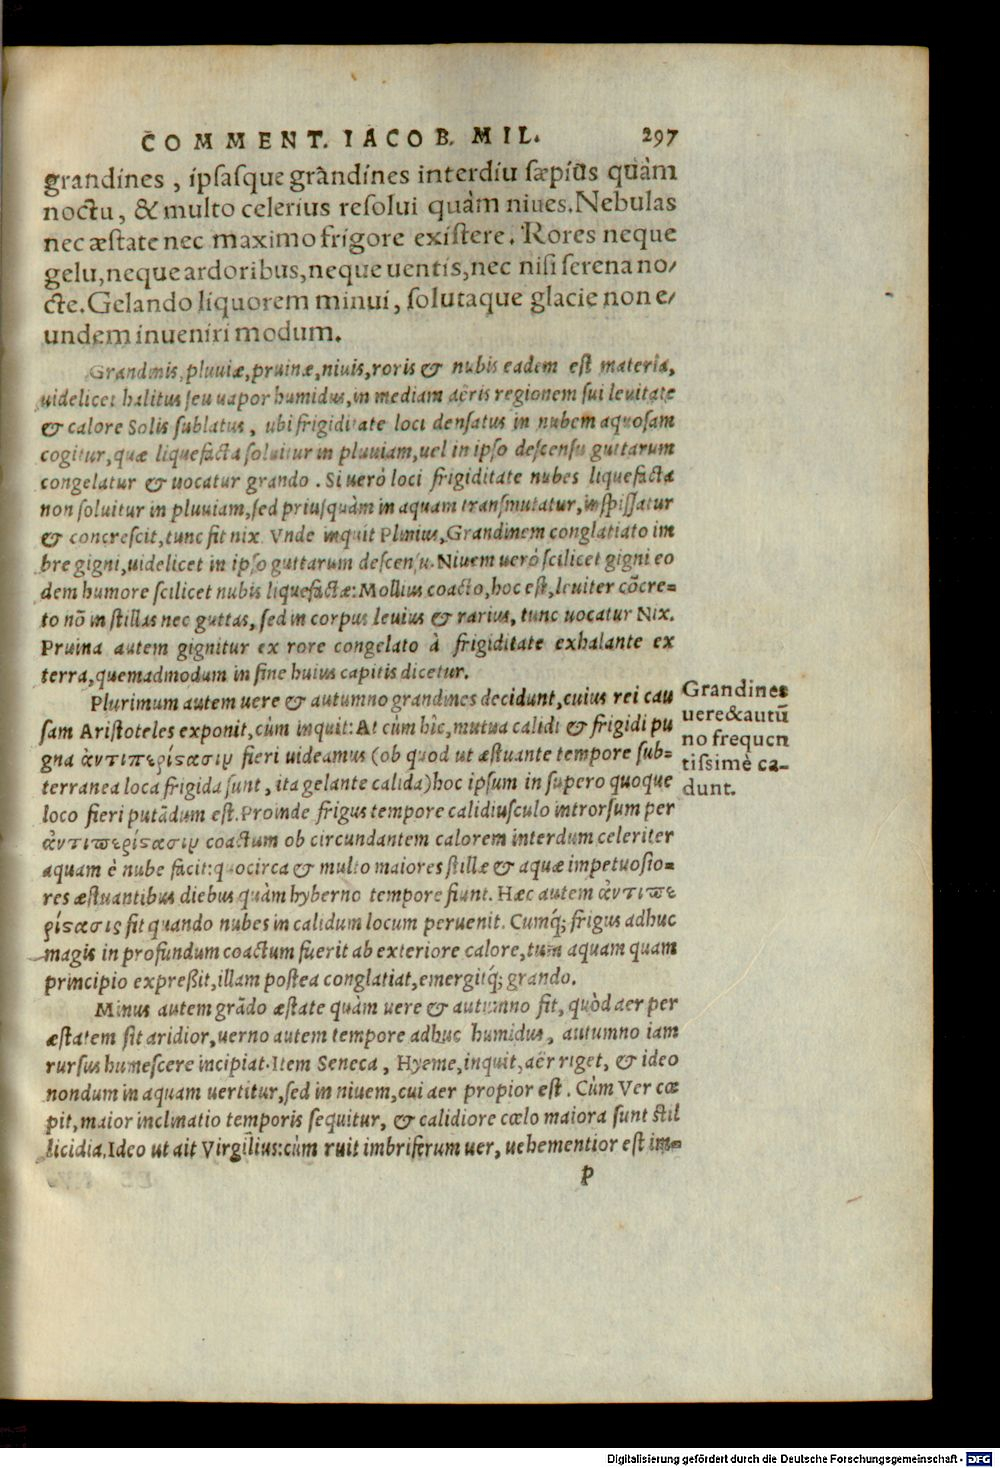 COMMENT. IACOB. MIL. 297
grandines, ipsasque grãndines interdiu sæpius quàm
noctu, & multo celerius resolui quàm niues. Nebulas
nec æstate nec maximo frigore existere. Rores neque
gelu, neque ardoribus, neque uentis, nec nisi serena no/
cte. Gelando liquorem minui, solutaque glacie non e/
undem inueniri modum.
Grandinis, pluuiæ, pruinæ, niuis, roris & nubis eadem est materia,
uidelicet halitus seu uapor humidus, in mediam aëris regionem sui leuitate
& calore Solis sublatus, ubi frigiditate loci densatus in nubem aquosam
cogitur, quæ liquefacta soluitur in pluuiam, uel in ipso descensu guttarum
congelatur & uocatur grando. Si uerò loci frigiditate nubes liquefacta
non soluitur in pluuiam, sed priusquàm in aquam transmutatur, inspissatur
& concrescit, tunc fit nix. Vnde inquit Plinius, Grandinem conglatiato im
bre gigni, uidelicet in ipso guttarum descensu. Niuem uerò scilicet gigni eo
dem humore scilicet nubis liquefactæ: Mollius coacto, hoc est, leuiter cõcre=
to nõ in stillas nec guttas, sed in corpus leuius & rarius, tunc uocatur Nix.
Pruina autem gignitur ex rore congelato à frigiditate exhalante ex
terra, quemadmodum in fine huius capitis dicetur.
Plurimum autem uere & autumno grandines decidunt, cuius rei cau
sam Aristoteles exponit, cùm inquit: At cùm hîc, mutua calidi & frigidi pu
gna ἀντιπερίστασιν fieri uideamus (ob quod ut æstuante tempore sub=
terranea loca frigida sunt, ita gelante calida) hoc ipsum in supero quoque
loco fieri putãdum est. Proinde frigus tempore calidiusculo introrsum per
ἀντιπερίστασιν coactum ob circundantem calorem interdum celeriter
aquam è nube facit: quocirca & multo maiores stillæ & aquæ impetuosio=
res æstuantibus diebus quàm hyberno tempore fiunt. Hæc autem ἀντιπε
ρίστασις fit quando nubes in calidum locum peruenit. Cumq́; frigus adhuc
magis in profundum coactum fuerit ab exteriore calore, tum aquam quam
principio expreßit, illam postea conglatiat, emergitq́; grando.
Minus autem grãdo æstate quàm uere & autumno fit, quòd aer per
æstatem sit aridior, uerno autem tempore adhuc humidus, autumno iam
rursus humescere incipiat. Item Seneca, Hyeme, inquit, aër riget, & ideo
nondum in aquam uertitur, sed in niuem, cui aer propior est. Cùm Ver cœ
pit, maior inclinatio temporis sequitur, & calidiore cœlo maiora sunt stil
licidia. Ideo ut ait Virgilius: cùm ruit imbriferum uer, uehementior est im=
P
Grandines
uere & autũ
no frequen
tissimè ca-
dunt.
Digitalisierung gefördert durch die Deutsche Forschungsgemeinschaft - DFG